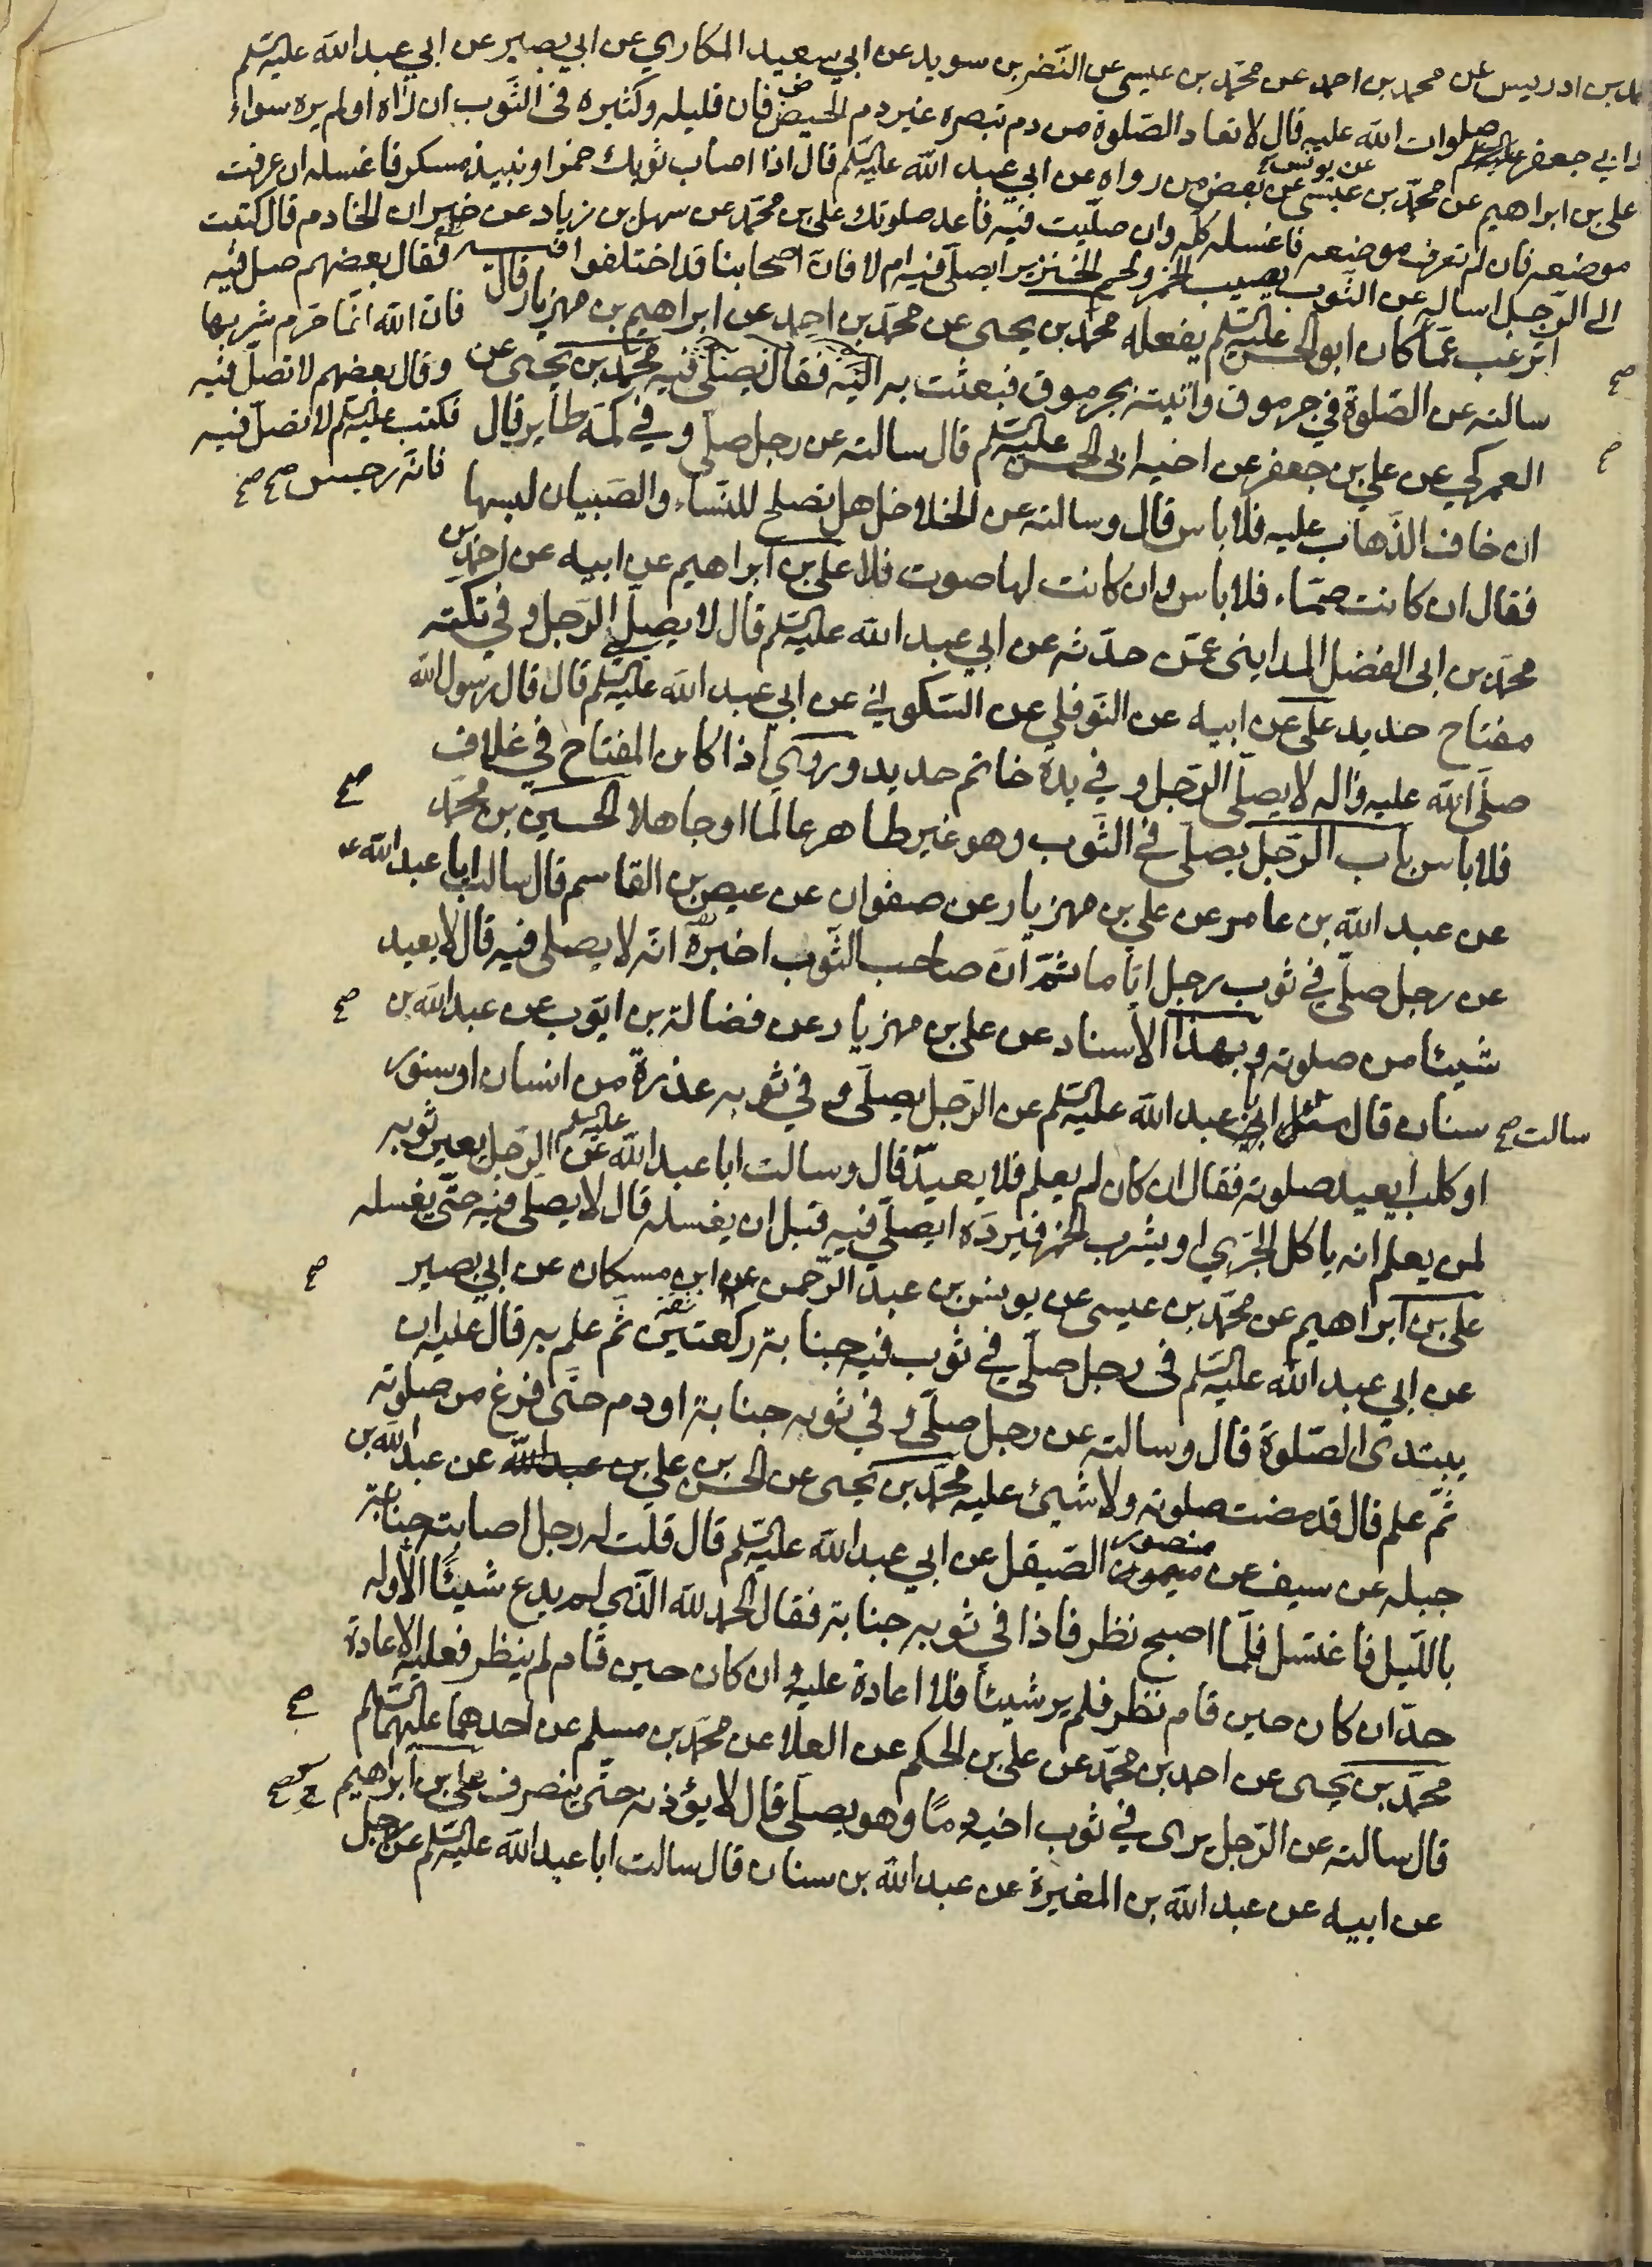 مد بن ادريس عن محمد بن احمد عن محمد بن عيسى عن النضر بن سويد عن ابي سعيد المكاري عن ابي بصير عن ابي عبد الله عليه السلم
او ابي جعفر صلوات الله عليه قال لا تعاد الصلوة من دم تبصره غير دم الحيض فان قليله وكثيره في الثوب ان رآه او لم يره سواء
علي بن ابراهيم عن محمد بن عيسى عن يونس عن بعض من رواه عن ابي عبد الله عليه السلم قال اذا اصاب ثوبك خمر او نبيذ مسكر فاغسله ان عرفت
موضعه فان لم تعرف موضعه فاغسله كله وان صليت فيه فاعد صلوتك علي بن محمد عن سهل بن زياد عن خيران الخادم قال كتبت
الى الرجل اساله عن الثوب يصيب الخمر ولحم الخنزير ايصلى فيه ام لا فان اصحابنا قد اختلفوا فيه فقال بعضهم صل فيه
فان الله انما حرم شربها
وقال بعضهم لا تصل فيه
فكتب عليه السلم لا تصل فيه
فانه رجس صح صح
اترغب عما كان ابو الحسن عليه السلم يفعله محمد بن يحيى عن محمد بن احمد عن ابراهيم بن مهزيار قال
سالته عن الصلوة في جرموق واتيته بجرموق فبعثت به اليه فقال يصلى فيه محمد بن يحيى عن
العمركي عن علي بن جعفر عن اخيه ابي الحسن عليه السلم قال سالته عن رجل صلى وفي كمه طاير قال
ان خاف الذهاب عليه فلا باس قال وسالته عن الخلاخل هل تصلح للنساء والصبيان لبسها
فقال ان كانت صماء فلا باس وان كانت لها صوت فلا علي بن ابراهيم عن ابيه عن احمد بن
محمد بن ابي الفضل المدايني عمن حدثه عن ابي عبد الله عليه السلم قال لا يصلي الرجل وفي تكته
مفتاح حديد علي عن ابيه عن النوفلي عن السكوني عن ابي عبد الله عليه السلم قال قال رسول الله
صلى الله عليه واله لا يصلي الرجل وفي يده خاتم حديد وروي اذا كان المفتاح في غلاف
فلا باس باب الرجل يصلي في الثوب وهو غير طاهر عالما او جاهلا الحسين بن محمد
عن عبد الله بن عامر عن علي بن مهزيار عن صفوان عن عيص بن القاسم قال سالت ابا عبد الله ع
عن رجل صلى في ثوب رجل اياما ثم ان صاحب الثوب اخبره انه لا يصلي فيه قال لا يعيد
شيئا من صلوته وبهذا الاسناد عن علي بن مهزيار عن فضالة بن ايوب عن عبد الله بن
سالت صح
سنان قال سئل ابي عبد الله عليه السلم عن الرجل يصلي وفي ثوبه عذرة من انسان او سنور
او كلب ايعيد صلوته فقال ان كان لم يعلم فلا يعيد قال وسالت ابا عبد الله عليه السلم عن الرجل يعير ثوبه
لمن يعلم انه ياكل الجري او يشرب الخمر فيرده ايصلي فيه قبل ان يغسله قال لا يصلي فيه حتى يغسله
علي بن ابراهيم عن محمد بن عيسى عن يونس بن عبد الرحمن عن ابن مسكان عن ابي بصير
عن ابي عبد الله عليه السلم في رجل صلى في ثوب فيه جنابة ركعتين ثم علم به قال عليه ان
يبتدئ الصلوة قال وسالته عن رجل صلى وفي ثوبه جنابة او دم حتى فرغ من صلوته
ثم علم قال قد مضت صلوته ولا شيئ عليه محمد بن يحيى عن الحسن بن علي بن عبد الله عن عبد الله بن
جبله عن سيف عن منصور الصيقل عن ابي عبد الله عليه السلم قال قلت له رجل اصابته جنابة
بالليل فاغتسل فلما اصبح نظر فاذا في ثوبه جنابة فقال الحمد لله الذي لم يدع شيئا الا وله
حد ان كان حين قام نظر فلم ير شيئا فلا اعادة عليه وان كان حين قام لم ينظر فعليه الاعادة
محمد بن يحيى عن احمد بن محمد عن علي بن الحكم عن العلا عن محمد بن مسلم عن احدهما عليهما السلم
قال سالته عن الرجل يرى في ثوب اخيه دما وهو يصلي قال لا يؤذنه حتى ينصرف علي بن ابراهيم
عن ابيه عن عبد الله بن المغيرة عن عبد الله بن سنان قال سالت ابا عبد الله عليه السلم عن رجل